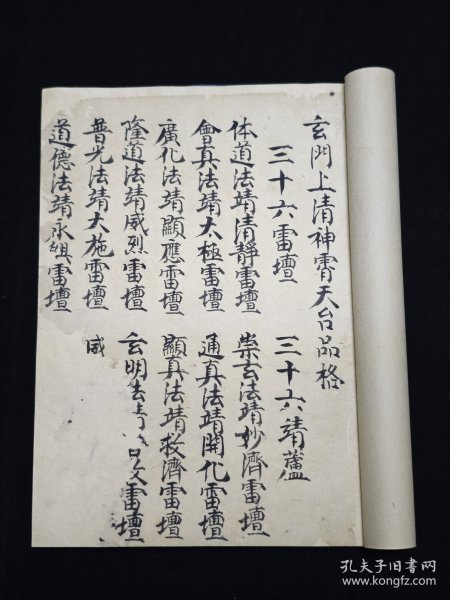 玄門上清神霄天台品格
三十六雷壇
三十六靖蘆
体道法靖清靜雷壇
崇玄法靖妙濟雷壇
會真法靖太極雷壇
通真法靖開化雷壇
廣化法靖顯應雷壇
顯真法靖救濟雷壇
隆道法靖威烈雷壇
玄明法靖 雷壇
普光法靖大施雷壇
威
道德法靖永 雷壇
孔夫子旧书网
www.kongfz.com